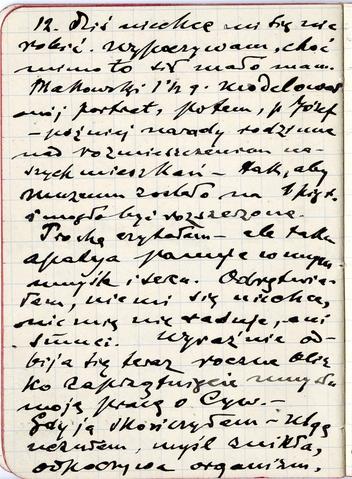 12. Dziś niechcę mi się nic
robić. Wypoczywam, choć
mimo to sił mało mam.
Makowski 1½ g. modelował
mój portret, potem, p. Józef
– później narady rodzinne
nad rozmieszczeniem na-
szych mieszkań – tak, aby
muzeum zostało na I pięt.
i mogło być rozszerzone.
Trochę czytałam – ale taka
apatya panuje w mym
umyśle i sercu. Odrętwia-
łam, nie mi się niechce,
nic mię nie raduje, ani
smuci. Wyraźnie od-
bija się teraz roczne
zaprzątnięcie umysłu
moją pracą o Cyw. –
Gdy ja skończyłam – ulgę
uczułam, myśl znikła,
odpoczywa organizm,